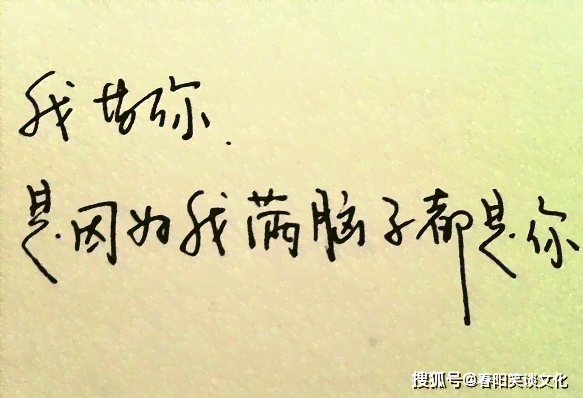 我 你.
是因为我满脑子都是你
搜狐号@春阳笑谈文化